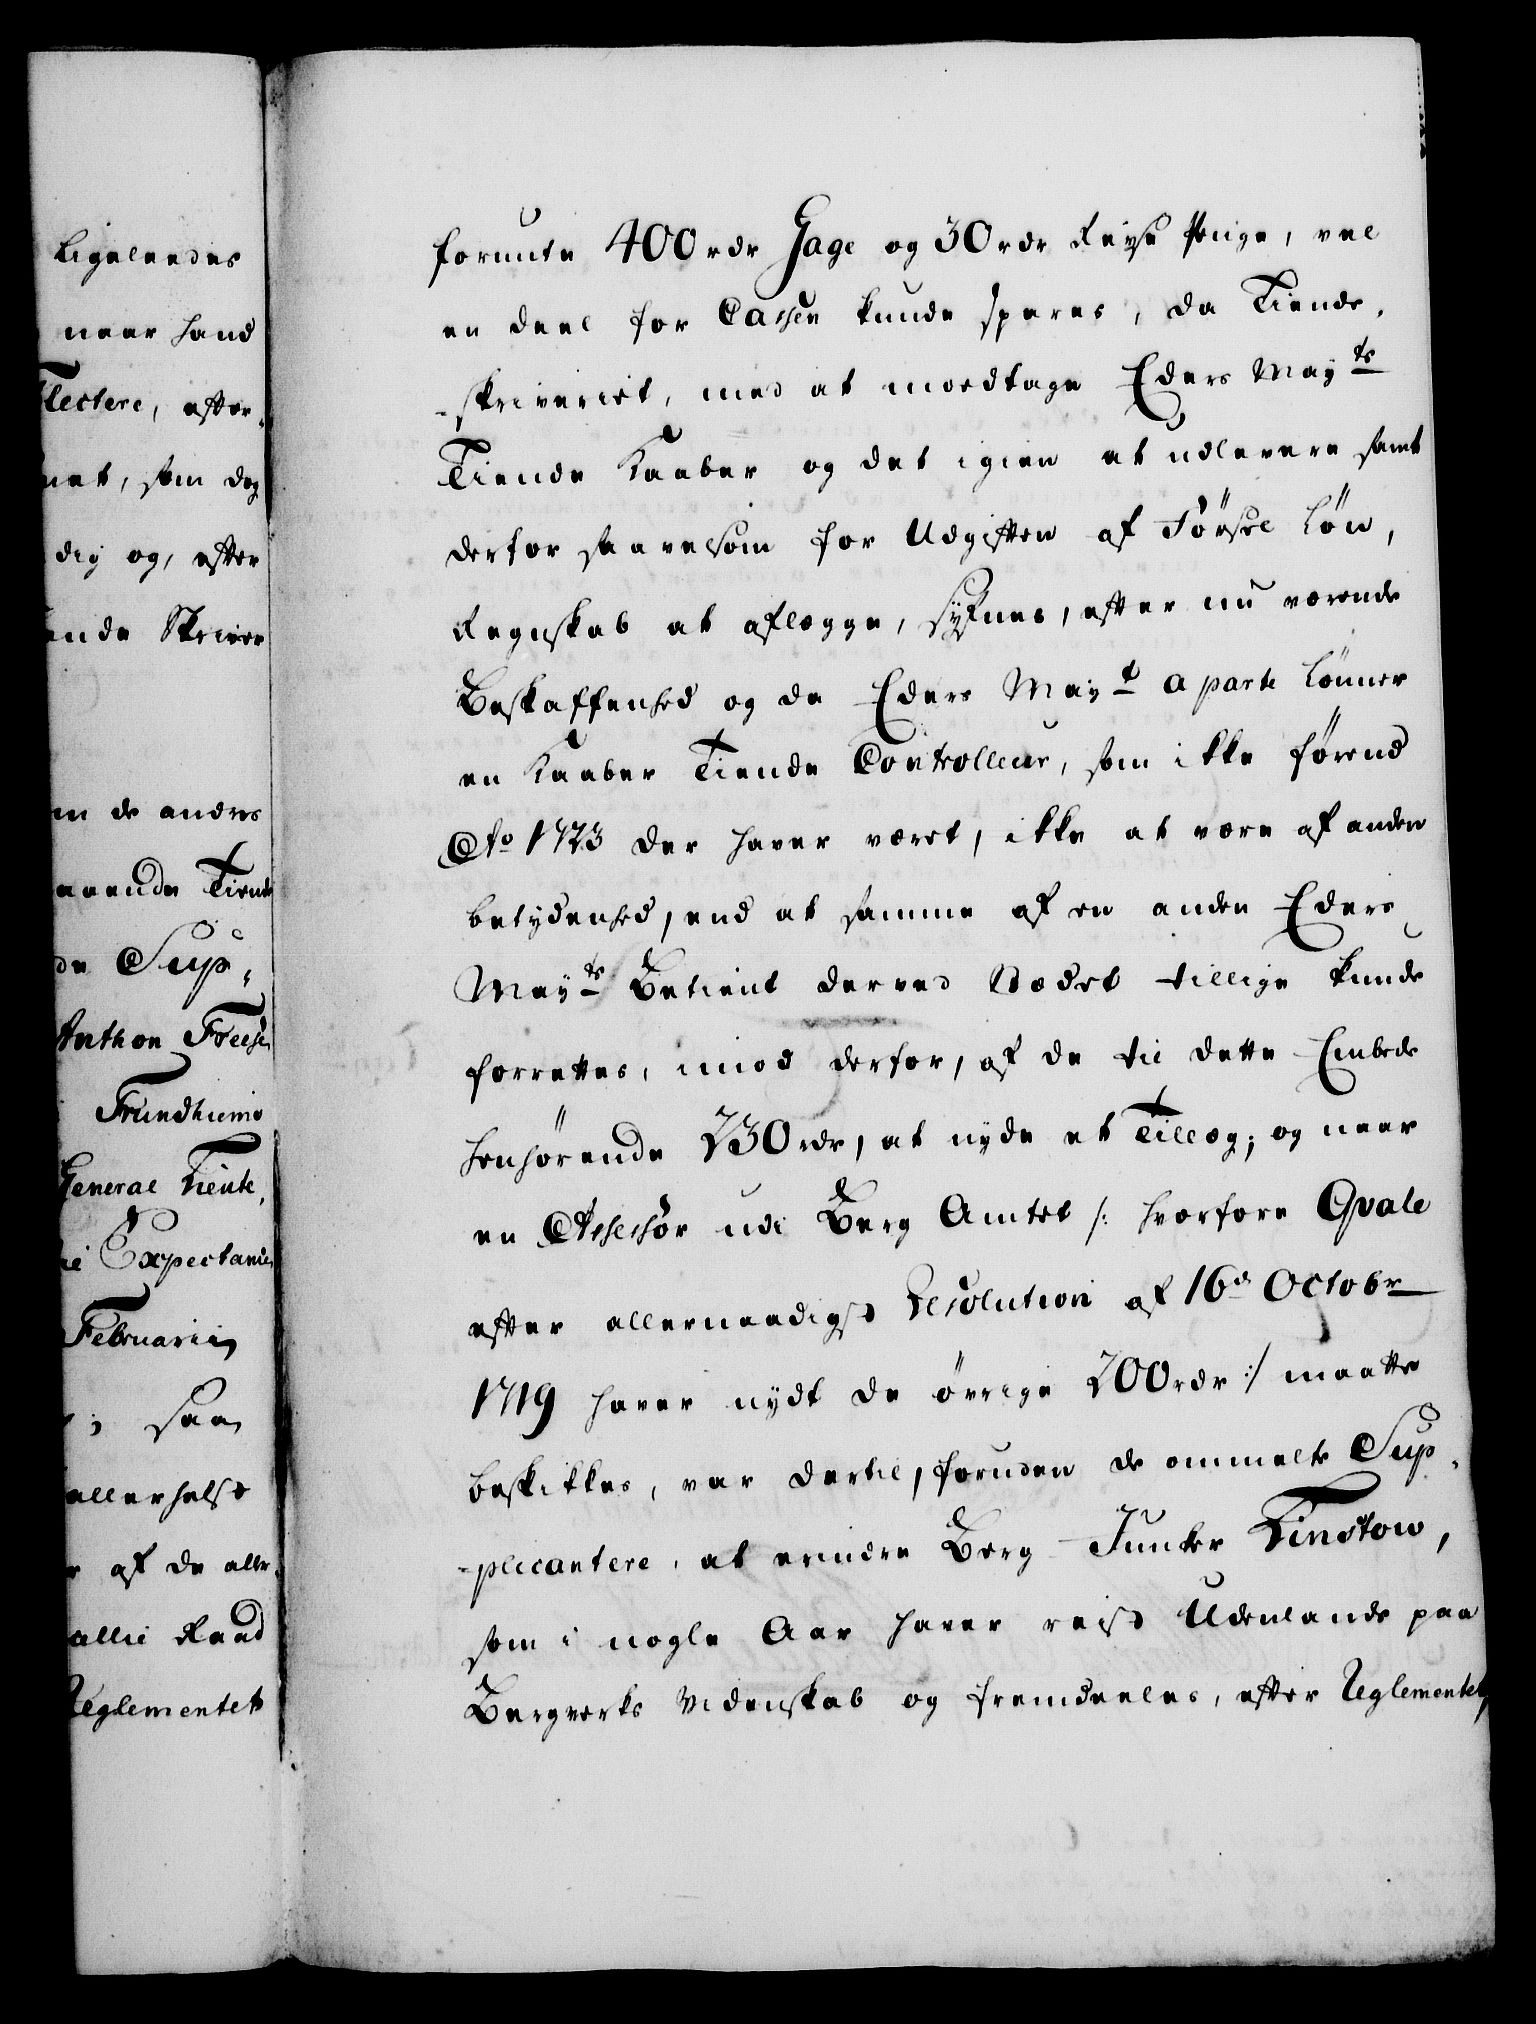 Ligeleedes
naar hand
flectere, efter¬
net, som dog
dig og, efter
ende Skriver
m de andres
ærende Tiende
de Sup¬
Anthon Freese
Trundhiems
General Tiente,
Expectance
Februarii
; saa
allerhelst
af de aller¬
Raad
Reglementet
forunte 400 rdr Gage og 30 rdr Reyse Penge, vel
en deel for Cassen kunde spares, da Tiende¬
-skriveriet, med at modtage Eders Mayts
Tiende Kaaber og det igien at udlevere samt
derfor saavelsom for Udgiften af Førsel Løn,
Regnskab at aflægge, syfnes, efter nu værende
Beskaffenhed og da Eders Mayt a parte lønner
en Kaaber Tiende Controlleur, som ikke førend
Ao 1723 der haver været, ikke at være af anden
betydenhed, end at samme af en anden Eders
Mayts Betient derved Stædet tillige kunde
forrettes, imod derfor, af de til dette Embede
henhørende 230 rdr, at nyde et Tillæg; og naar
en Assessor udi Berg Amtet /: hvorfore Qvale
efter allernaadigst Resolution af 16de Octobr
1719 haver nydt de øvrige 200 rdr :/ maatte
beskikkes, var dertil, foruden de ommelte Sup¬
-plicantere, at erindre Berg Junker Tinstow,
som i nogle Aar haver reist Udenlands paa
Bergverks Videnskab og fremdeeles, efter Reglementet,